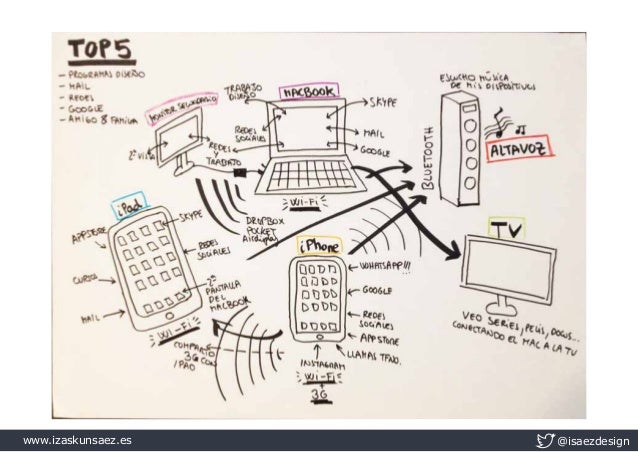 TOP5
- PROGRAMAS DISEÑO
- MAIL
- REDES
- GOOGLE
- AMIGO & FAMILIA
MONITOR SECUNDARIO
2ª VISTA
REDES
Y
TRABAJO
TRABAJO
DISEÑO
MACBOOK
SKYPE
REDES
SOCIALES
MAIL
GOOGLE
WI-FI
DROPBOX
POCKET
Airdisplay
ESCUCHO MÚSICA
DE MIS DISPOSITIVOS
BLUETOOTH
ALTAVOZ
TV
VEO SERIES, PELIS, DOCUS...
CONECTANDO EL MAC A LA TV
iPad
APPSTORE
SKYPE
REDES
SOCIALES
2ª
PANTALLA
DEL
MACBOOK
MAIL
WI-FI
COMPARTO
3G CON
IPAD
iPhone
WHATSAPP!!!
GOOGLE
REDES
SOCIALES
APPSTORE
LLAMAS TFNO.
INSTAGRAM
WI-FI
+
3G
www.izaskunsaez.es
@isaezdesign